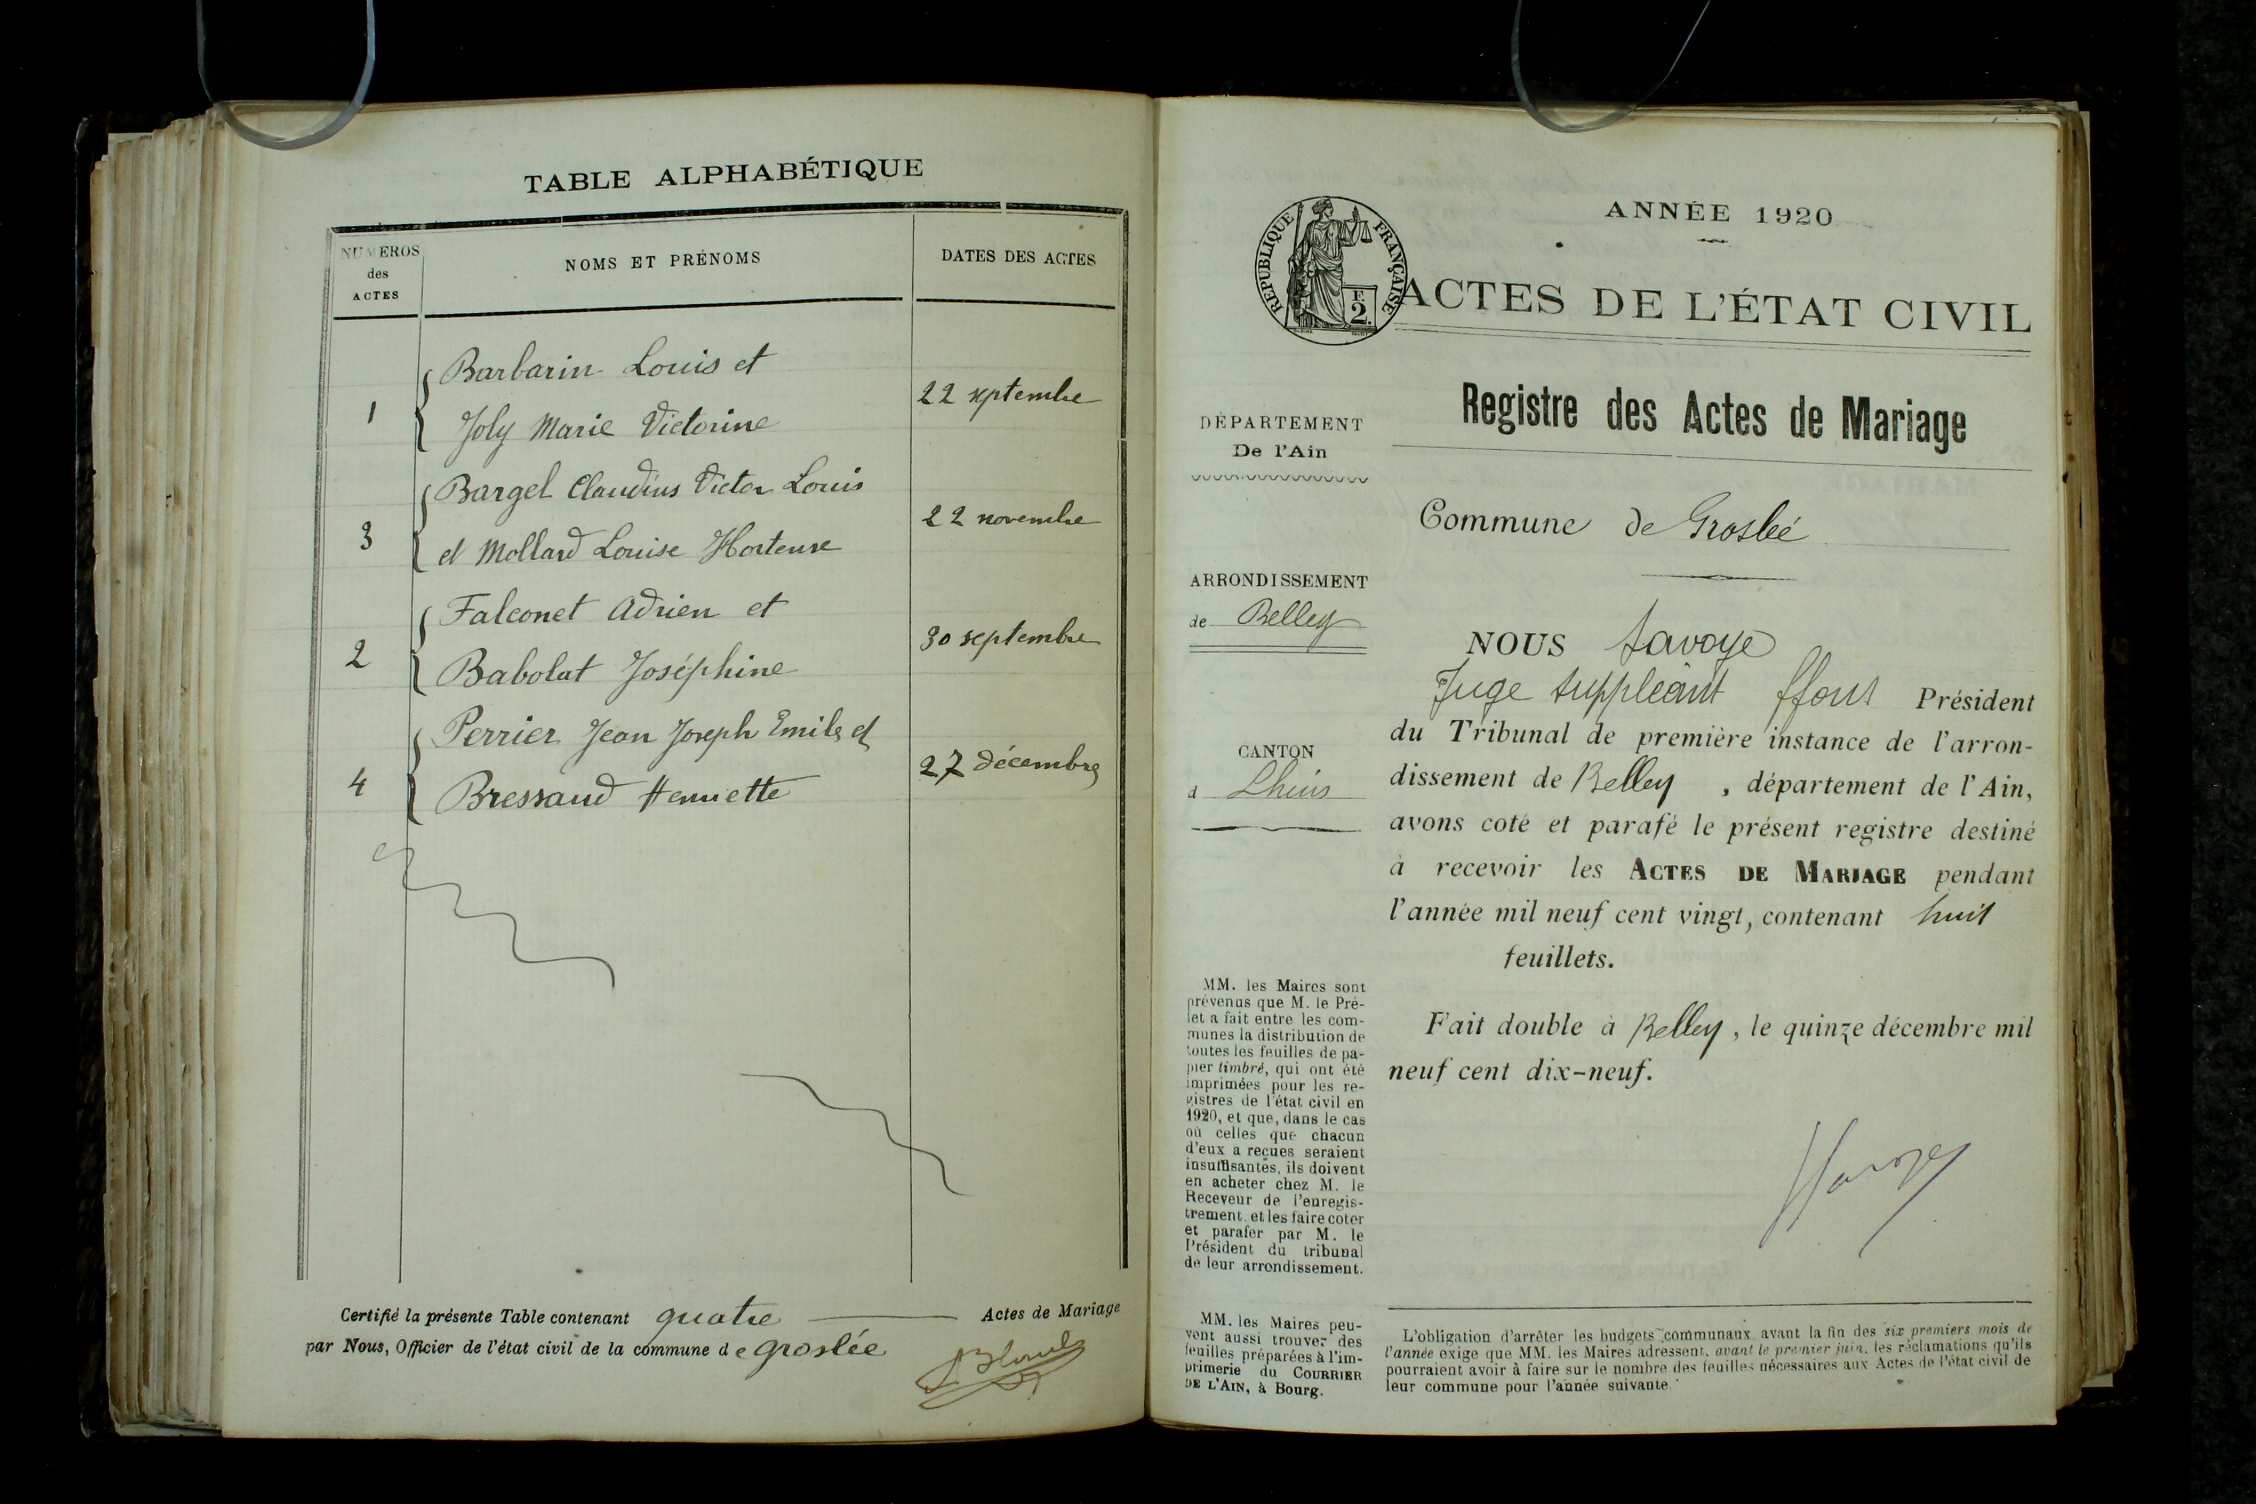 TABLE ALPHABÉTIQUE
NUMEROS
des
ACTES
NOMS ET PRÉNOMS
DATES DES ACTES
1
Barbarin Louis et
Joly Marie Victorine
22 septembre
3
Bargel Claudius Victor Louis
et Mollard Louise Hortense
22 novembre
2
Falconet Adrien et
Babolat Joséphine
30 septembre
4
Perrier Jean Joseph Emile et
Bressand Henriette
27 décembre
Certifié la présente Table contenant quatre Actes de Mariage
par Nous, Officier de l'état civil de la commune de Groslée
ANNÉE 1920
REPUBLIQUE FRANÇAISE
F.
2.
ACTES DE L'ÉTAT CIVIL
Registre des Actes de Mariage
DÉPARTEMENT
De l'Ain
Commune de Groslée
ARRONDISSEMENT
de Belley
CANTON
d Lhuis
NOUS Savoye
Juge suppléant ffons Président
du Tribunal de première instance de l'arron-
dissement de Belley, département de l'Ain,
avons coté et parafé le présent registre destiné
à recevoir les ACTES DE MARIAGE pendant
l'année mil neuf cent vingt, contenant huit
feuillets.
Fait double à Belley, le quinze décembre mil
neuf cent dix-neuf.
MM. les Maires sont
prévenus que M. le Pré-
fet a fait entre les com-
munes la distribution de
toutes les feuilles de pa-
pier timbré, qui ont été
imprimées pour les re-
gistres de l'état civil en
1920, et que, dans le cas
où celles que chacun
d'eux a reçues seraient
insuffisantes, ils doivent
en acheter chez M. le
Receveur de l'enregis-
trement et les faire coter
et parafer par M. le
Président du tribunal
de leur arrondissement.
MM. les Maires peu-
vent aussi trouver des
feuilles préparées à l'im-
primerie du COURRIER
DE L'AIN, à Bourg.
L'obligation d'arrêter les budgets communaux avant la fin des six premiers mois de
l'année exige que MM. les Maires adressent, avant le premier juin, les réclamations qu'ils
pourraient avoir à faire sur le nombre des feuilles nécessaires aux Actes de l'état civil de
leur commune pour l'année suivante